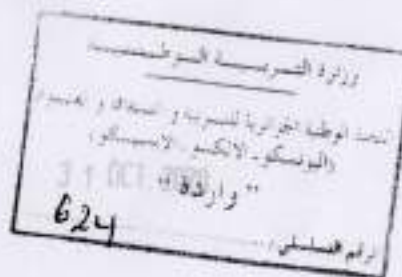 وزارة التربية الوطنية
الوطنية الجزائرية للتربية و الثقافة و العلوم
(اليونسكو - الالكسو - الايسيسكو)
31 OCT.
"واردة"
الرقم التسلسلي: 624